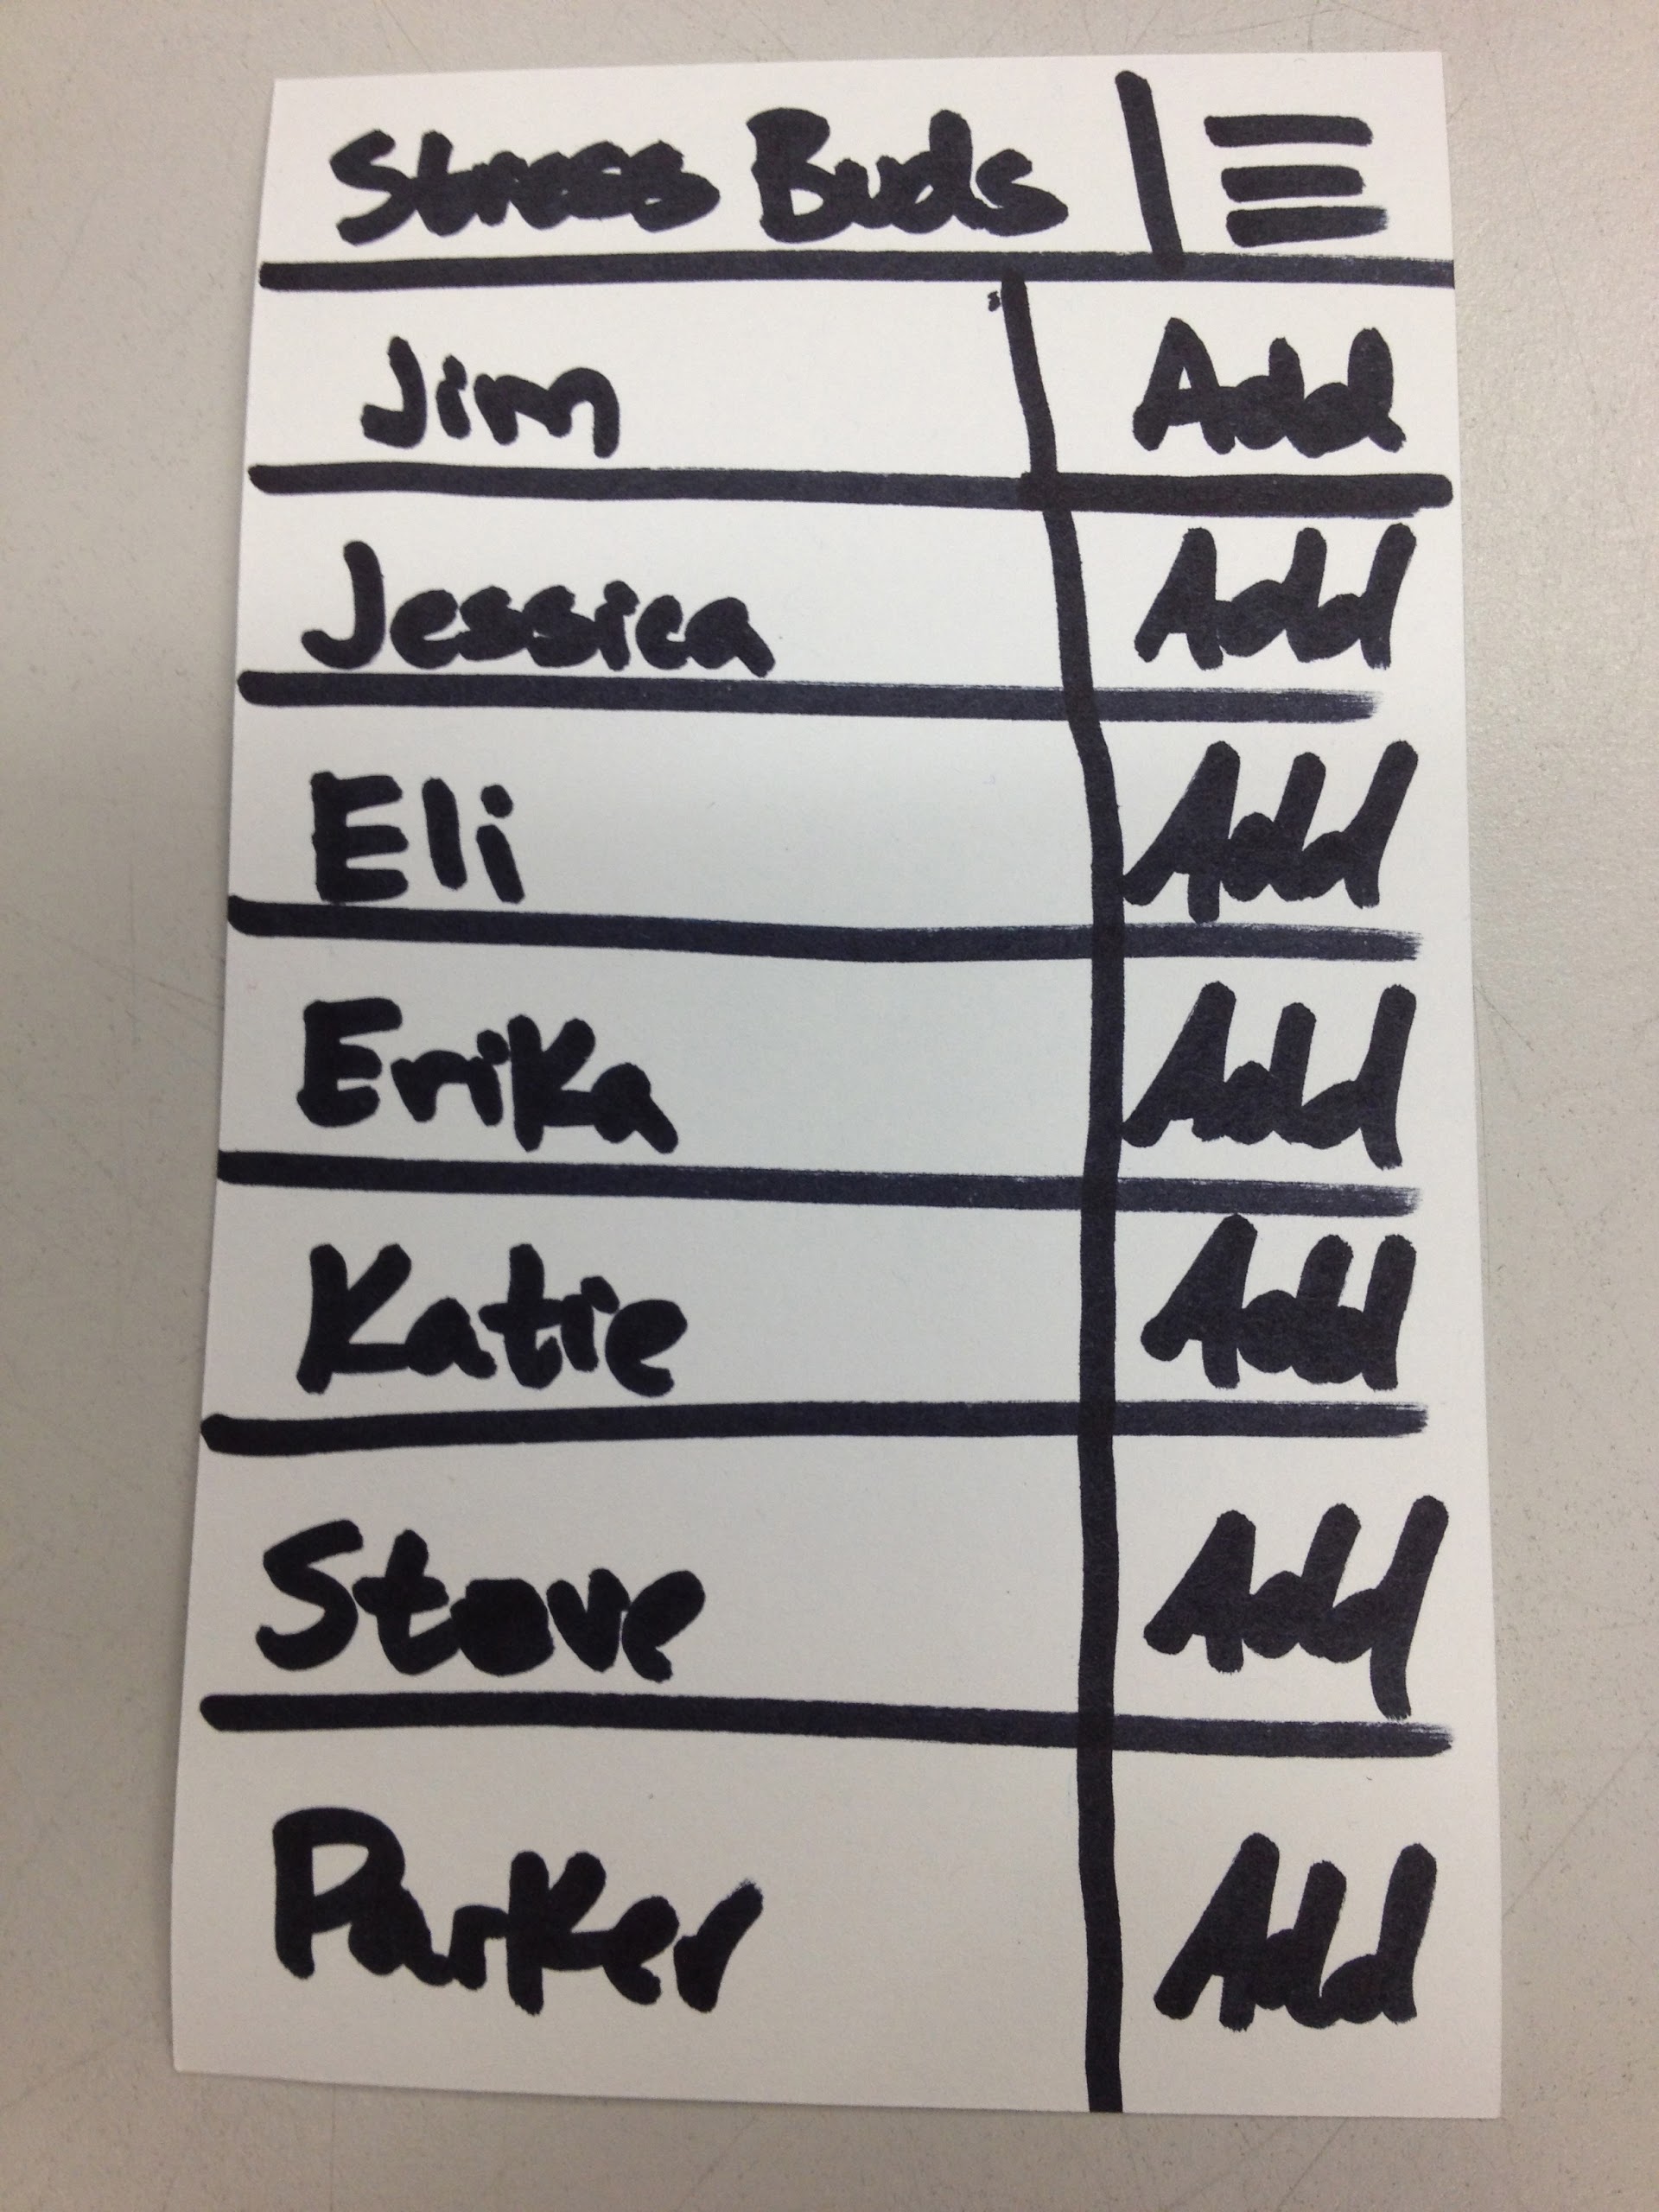 Stress Buds
Jim Add
Jessica Add
Eli Add
Erika Add
Katie Add
Steve Add
Parker Add